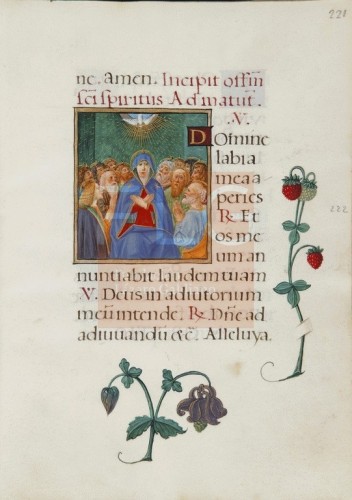 221
ne. amen. Incipit offm̄
sc̄i spiritus Ad matut̄.
V.
Domine
labia
mea a
peries
R. Et
os me
um an
nuntiabit laudem tuam
V. Deus in adiutorium
meū intende. R. Dn̄e ad
adiuvandū &c̄. Alleluya.
222